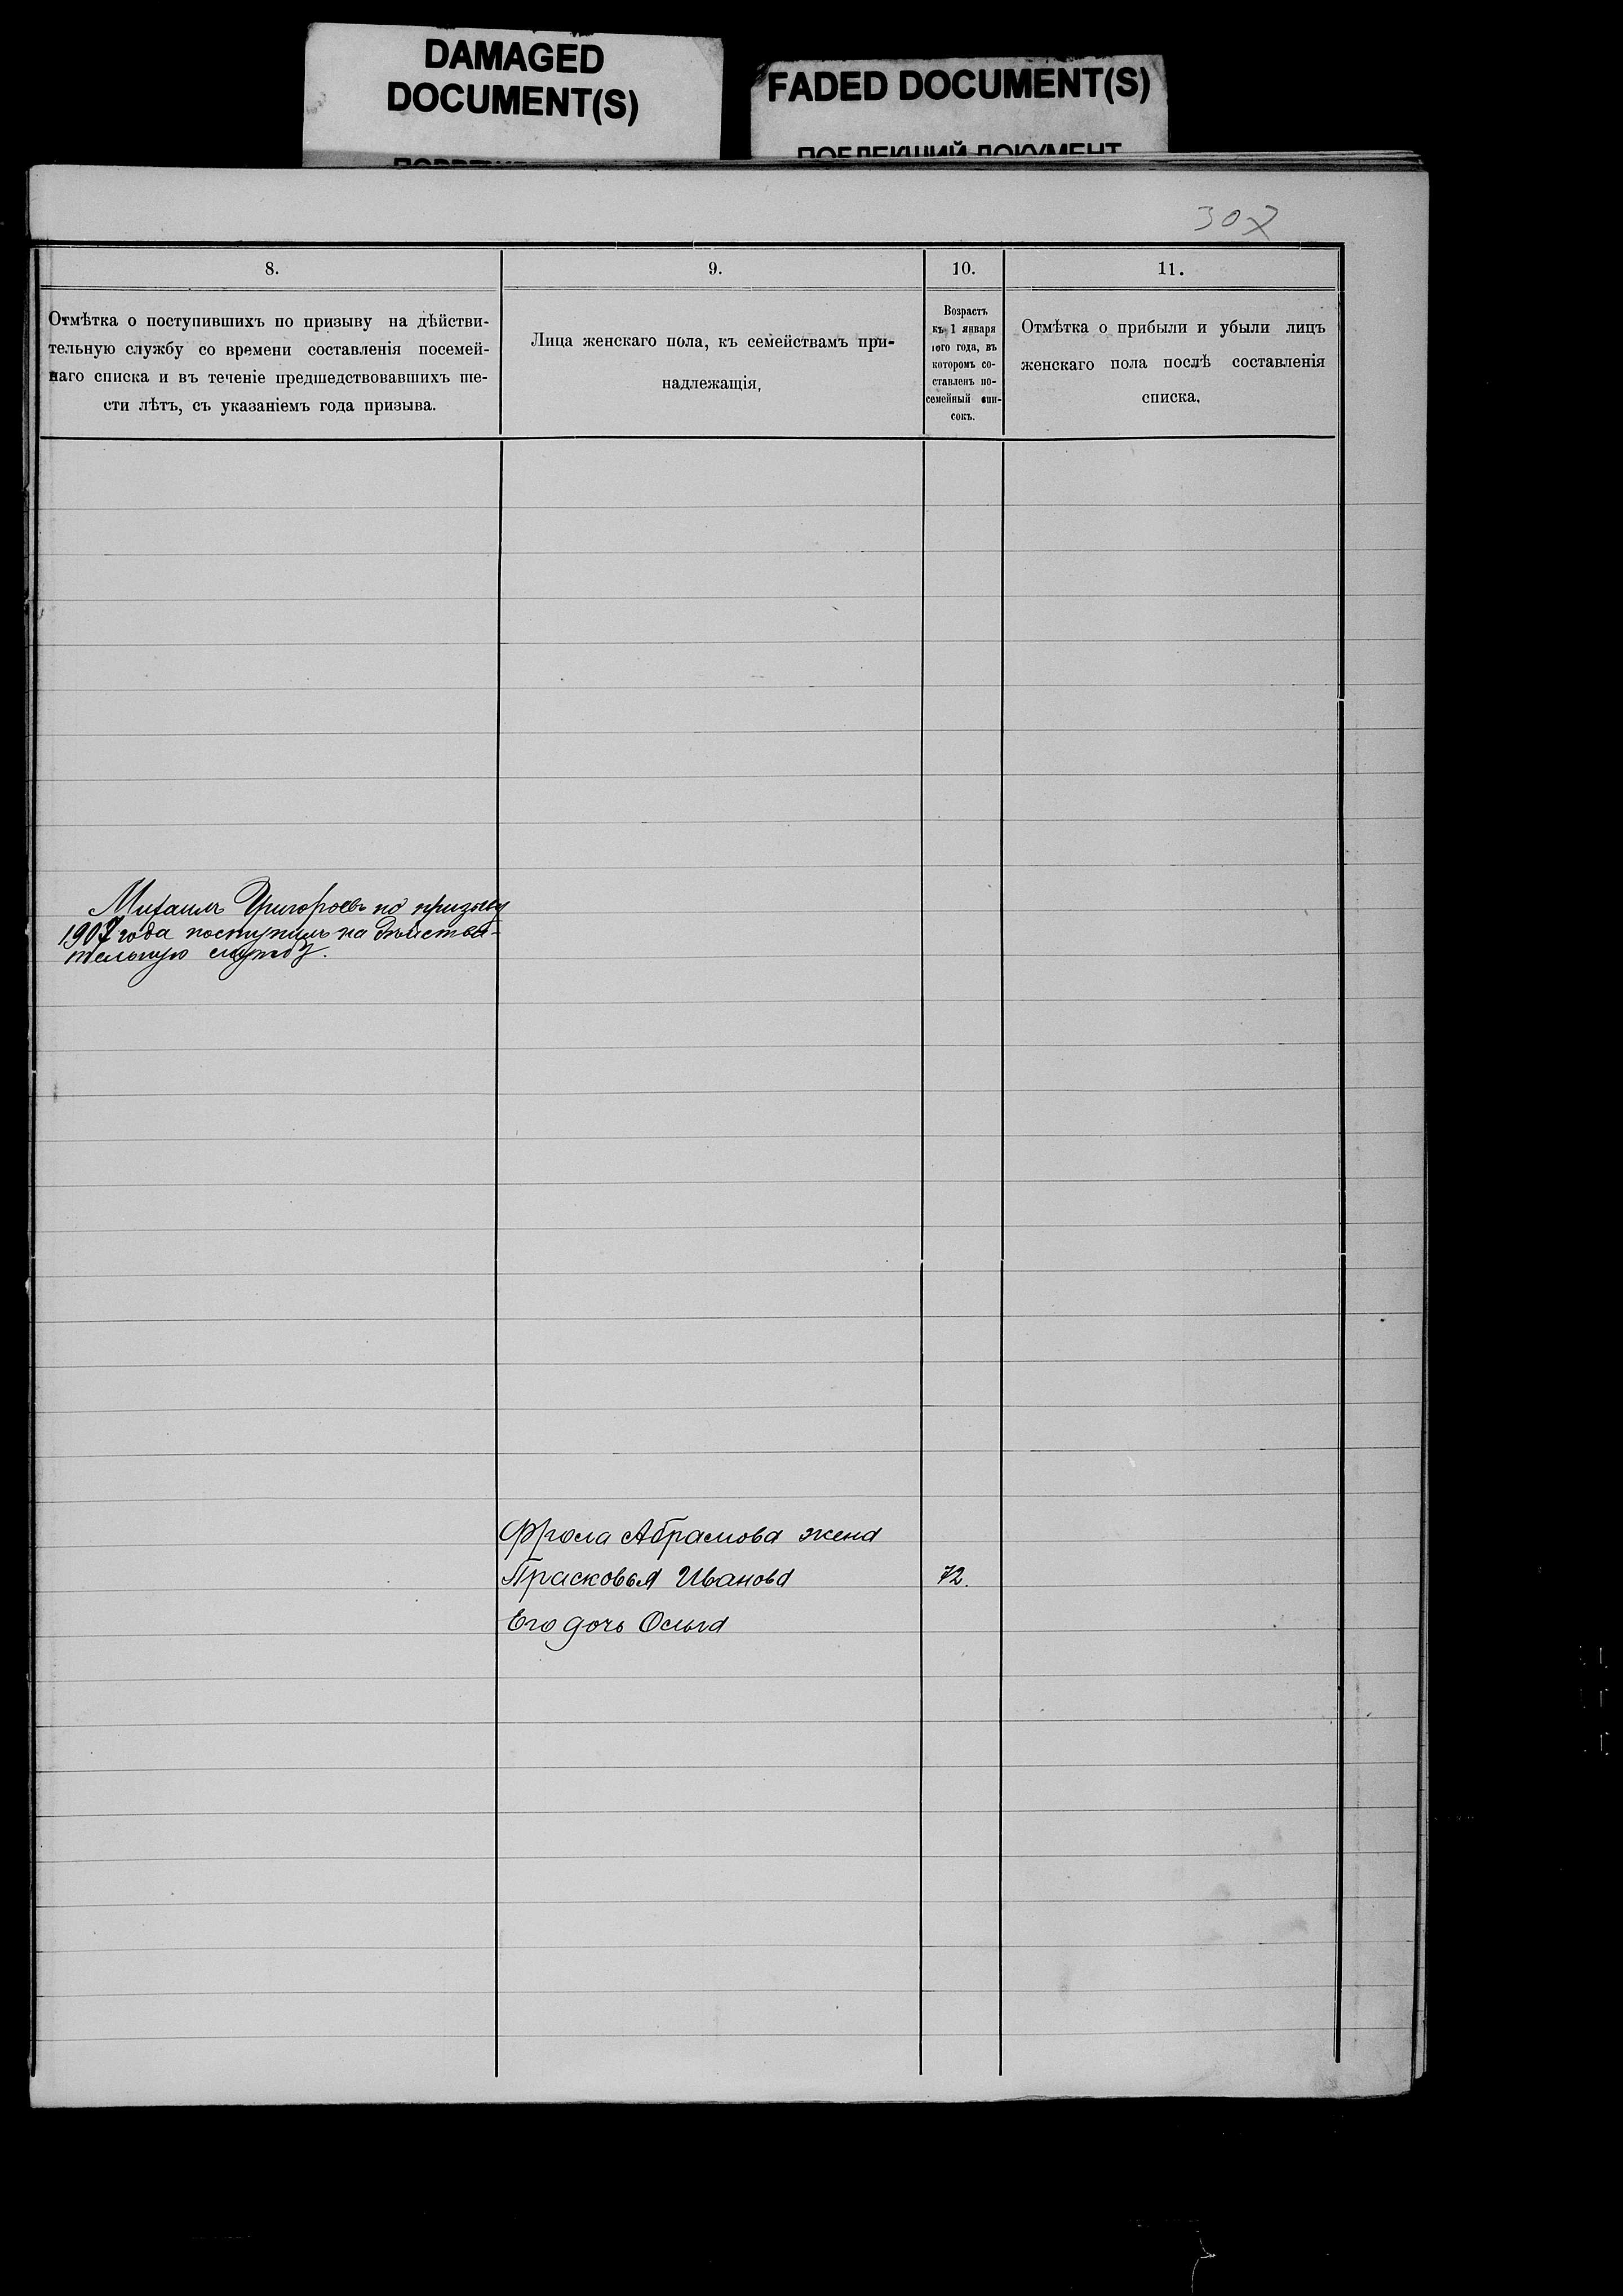 DAMAGED
DOCUMENT(S)
FADED DOCUMENT(S)
ПОБЛЕКШИЙ ДОКУМЕНТ
307
8.
Отмѣтка о поступившихъ по призыву на дѣйстви-
тельную службу со времени составленія посемей-
наго списка и въ теченіе предшедствовавшихъ ше-
сти лѣтъ, съ указаніемъ года призыва.
9.
Лица женскаго пола, къ семействамъ при-
надлежащія,
10.
Возрастъ
къ 1 января
того года, въ
которомъ со-
ставленъ по-
семейный спи-
сокъ.
11.
Отмѣтка о прибыли и убыли лицъ
женскаго пола послѣ составленія
списка,
Михаилъ Григорьевъ по призыву
1907 года поступилъ на дѣйстви-
тельную службу.
Фрола Абрамова жена
Прасковья Иванова 72.
Его дочь Ольга